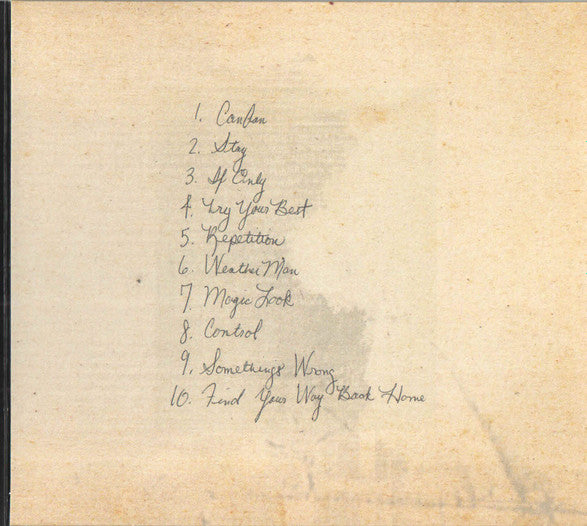 1. CanCan
2. Stay
3. If Only
4. Try Your Best
5. Repetition
6. Weather Man
7. Magic Look
8. Control
9. Somethings Wrong
10. Find Your Way Back Home